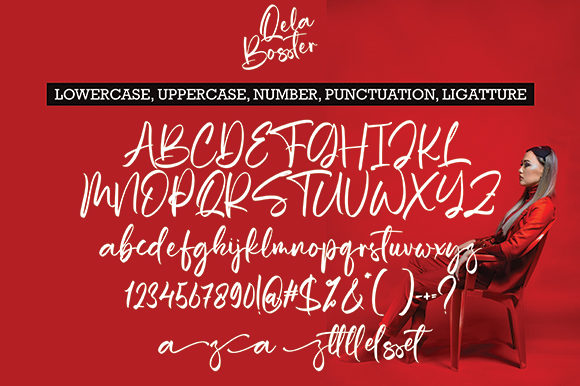 Qela
Bosster
LOWERCASE, UPPERCASE, NUMBER, PUNCTUATION, LIGATTURE
ABCDEFGHIJKL
MNOPQRSTUVWXYZ
abcdefghijklmnopqrstuvwxyz
1234567890!@#$%&*()-+=?
a z a ztttllelsset